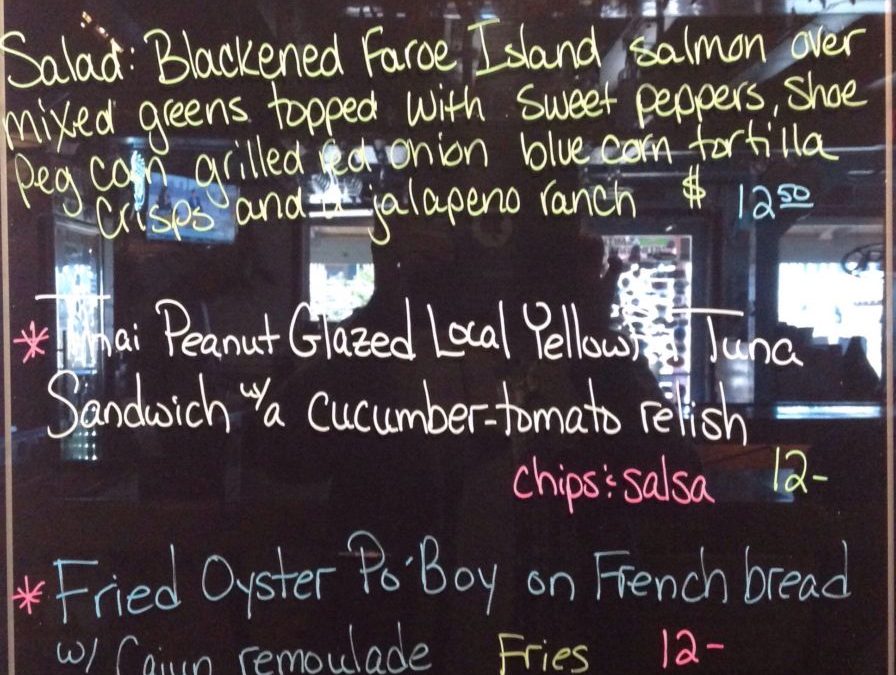 Salad: Blackened Faroe Island salmon over
mixed greens topped with sweet peppers, shoe
peg corn grilled red onion blue corn tortilla
crisps and a jalapeno ranch $ 12 50
* Thai Peanut Glazed Local Yellowfin Tuna
Sandwich w/a cucumber-tomato relish
chips & salsa 12-
* Fried Oyster Po'Boy on French bread
w/ Cajun remoulade Fries 12-